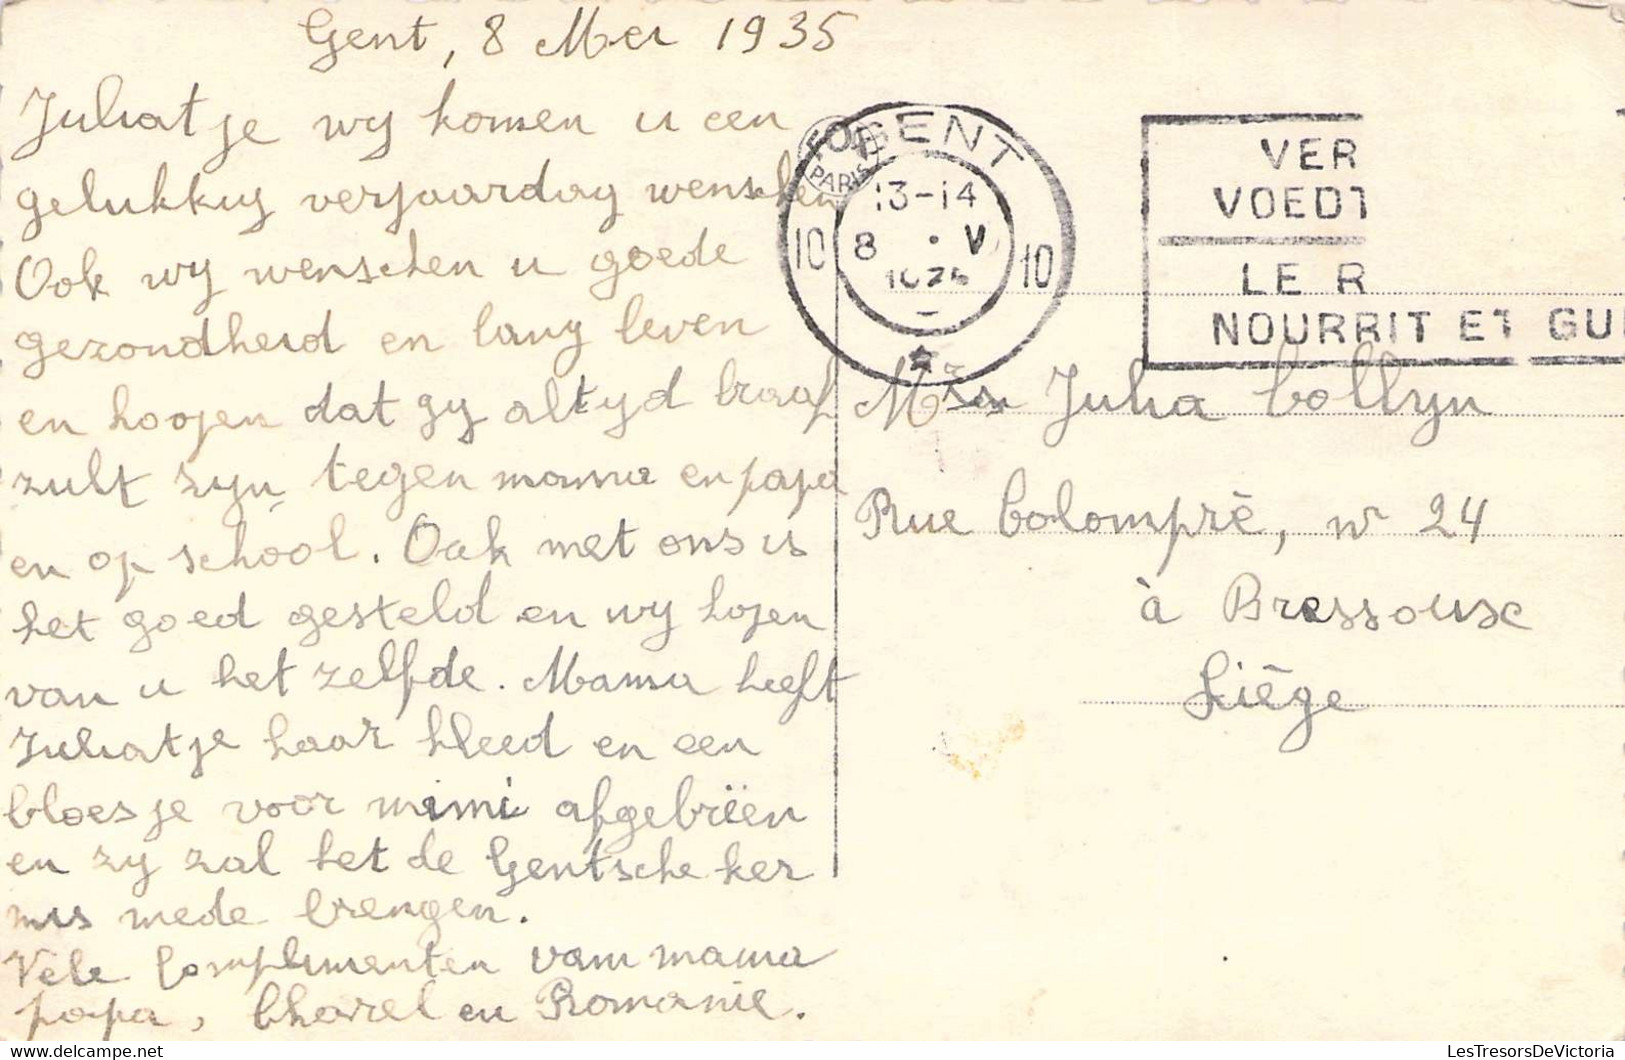 Gent, 8 Mei 1935
Juliatje wy komen u een
gelukkig verjaardag wenschen
Ook wy wenschen u goede
gezondheid en lang leven
en hoopen dat gy altyd braaf
zult zyn tegen mama en papa
en op school. Ook met ons is
het goed gesteld en wy hopen
van u het zelfde. Mama heeft
Juliatje haar kleed en een
bloesje voor mimi afgebrëien
en zy zal het de Gentsche ker
mis mede brengen.
Vele Complimenten van mama
papa, Charel en Romanie.
TOP
PARIS
GENT
13-14
10 8 . V 10
VER
VOEDT
LE R
NOURRIT ET GU
Miss Julia Collyn
Rue Colompré, nr 24
à Bressoux
Liège
LesTresorsDeVictoria